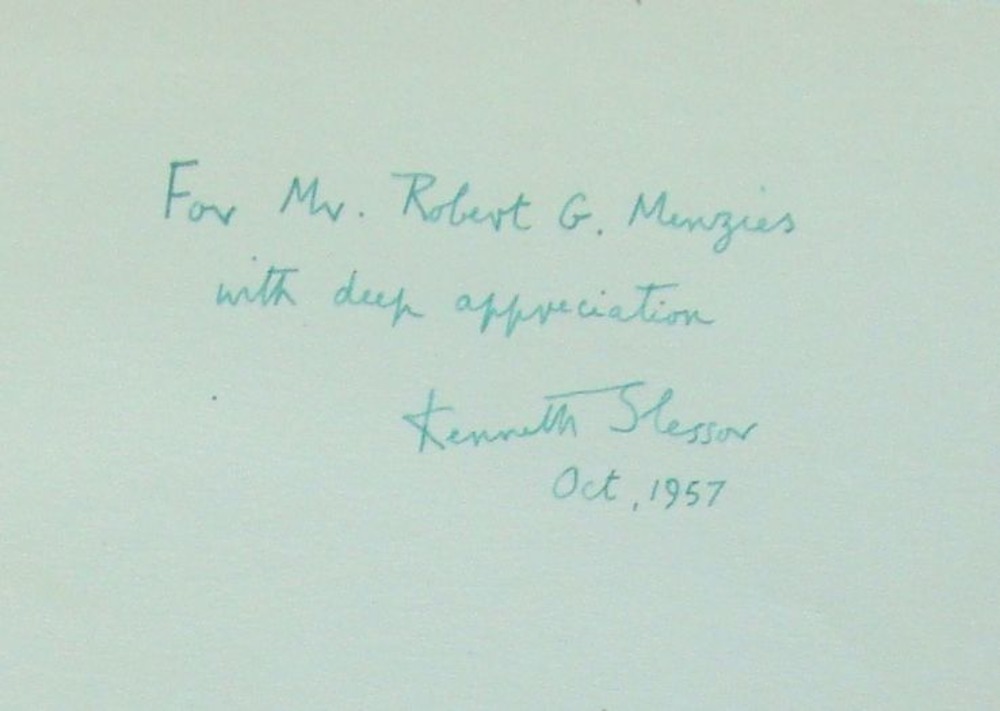 For Mr. Robert G. Menzies
with deep appreciation
Kenneth Slessor
Oct, 1957